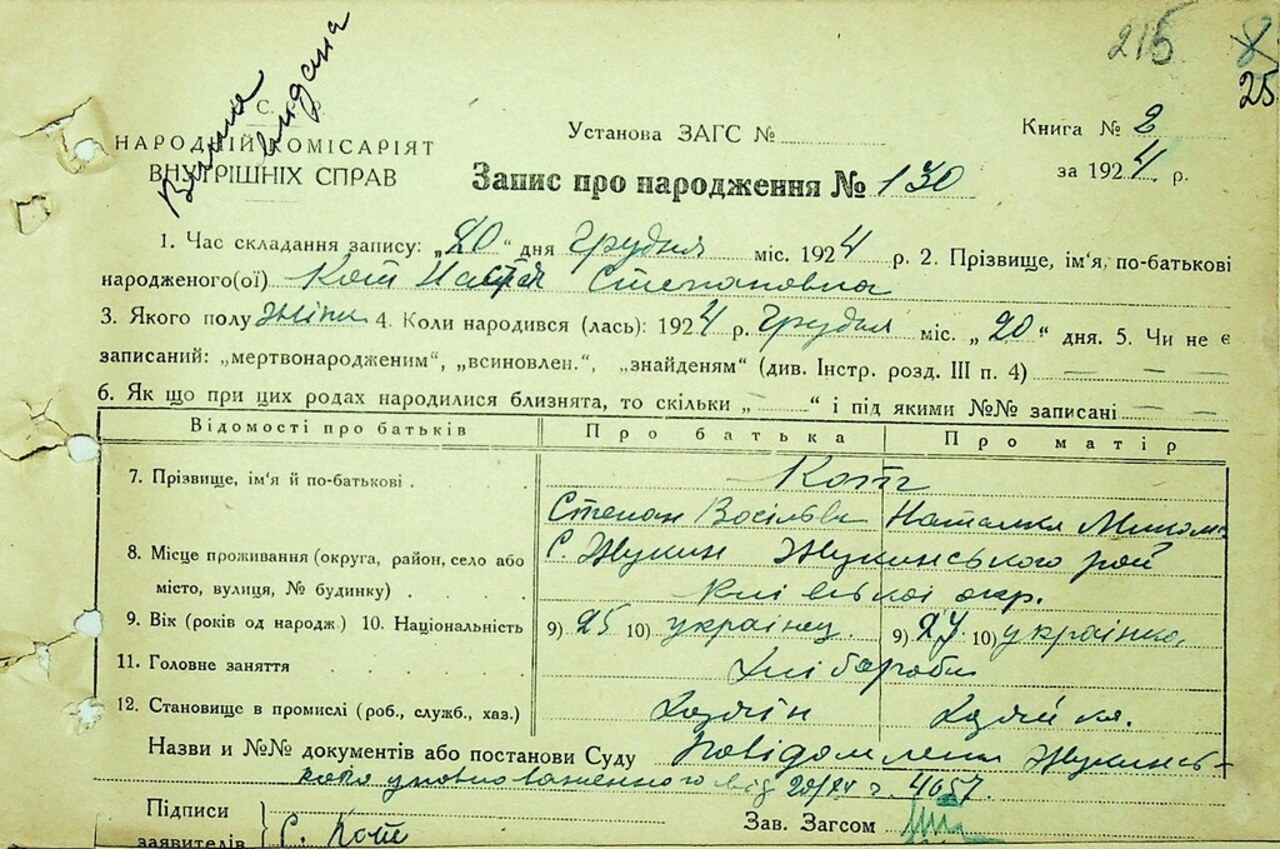 215
25
Виписка видана
НАРОДНІЙ КОМІСАРІЯТ
ВНУТРІШНІХ СПРАВ
Установа ЗАГС №
Книга № 2
за 1924 р.
Запис про народження № 130
1. Час складання запису: „20“ дня Грудня міс. 1924 р. 2. Прізвище, ім'я, по-батькові
народженого(ої) Кот Настя Степановна
3. Якого полу жіночи 4. Коли народився (лась): 1924 р. Грудня міс. „20“ дня. 5. Чи не є
записаний: „мертвонародженим“, „всиновлен.“, „знайденям“ (див. Інстр. розд. III п. 4) — — —
6. Як що при цих родах народилися близнята, то скільки „ “ і під якими №№ записані — —
Відомості про батьків Про батька Про матір
7. Прізвище, ім'я й по-батькові . Кот
Степан Васільев Наталка Миком
8. Місце проживання (округа, район, село або С. Жукин Жукинського рой
місто, вулиця, № будинку) . Київської окр.
9. Вік (років од народж.) 10. Національність 9) 25 10) українец. 9) 24 10) українка,
11. Головне заняття Хліборобы
12. Становище в промислі (роб., служб., хаз.) Хазяін Хазяйка.
Назви и №№ документів або постанови Суду Повідомлення Жукинсь-
кого уповноваженного від 20/XII г. 4657.
Підписи
заявителів } С. Кот
Зав. Загсом